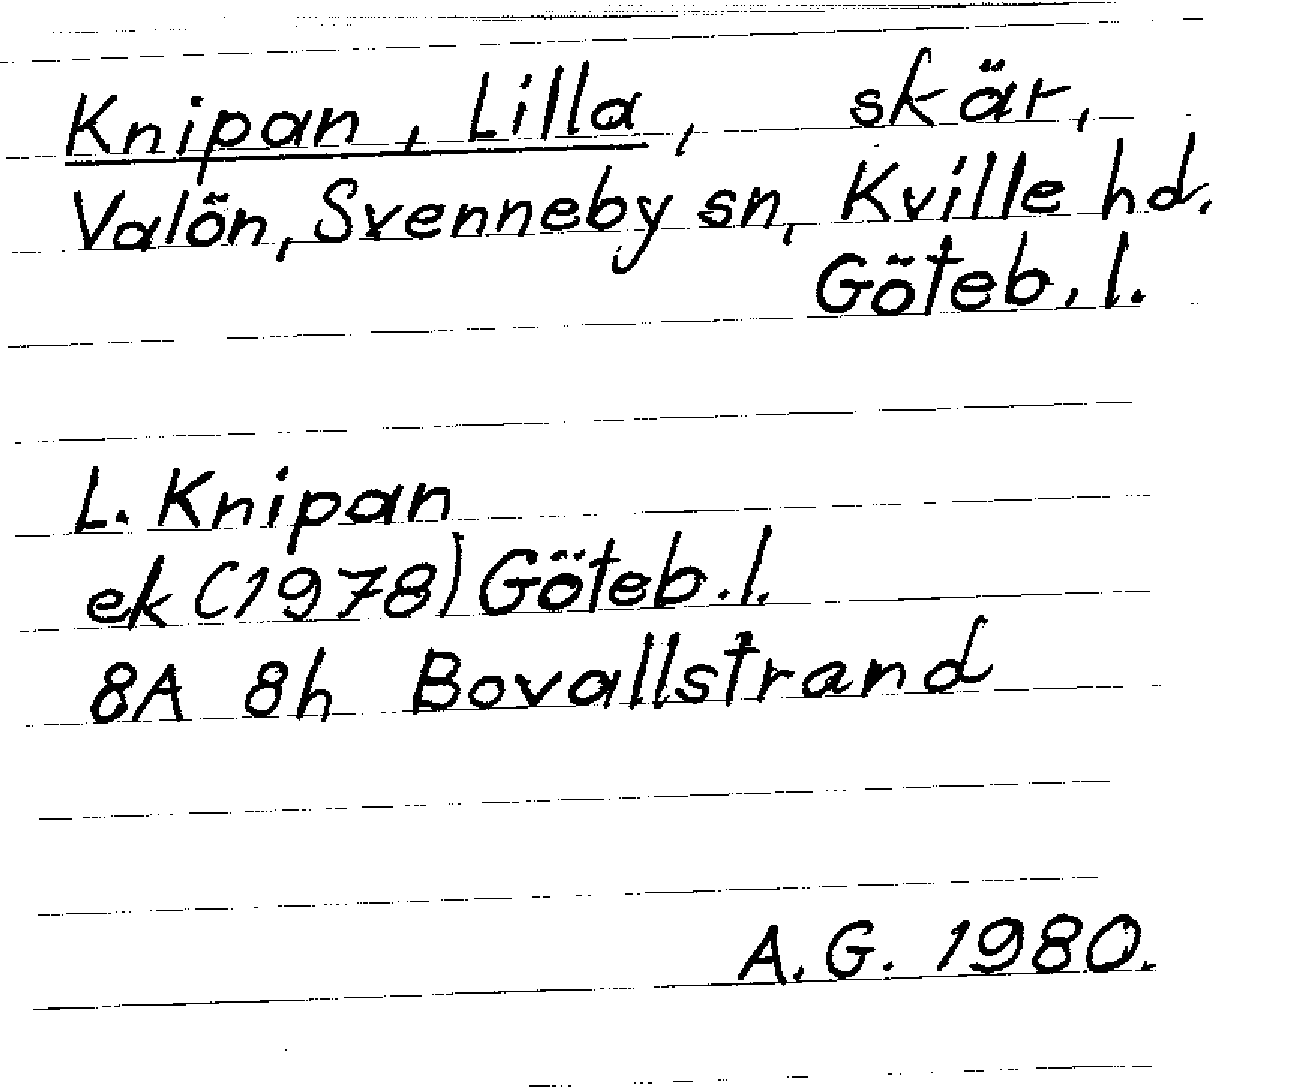 Knipan, Lilla, skär,
Valön, Svenneby sn, Kville hd.
Göteb. l.
L. Knipan
ek (1978) Göteb. l.
8A 8h Bovallstrand
A. G. 1980.